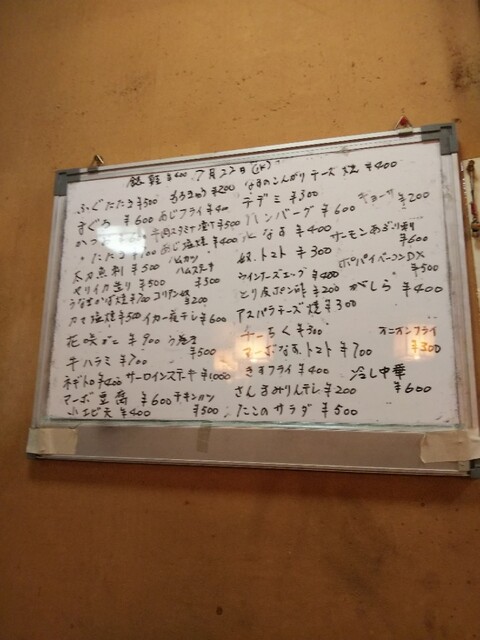 銀鮭 ¥400 7月22日(水)
ふぐたたき ¥500 もろきゅう ¥200 なすのこんがりチーズ焼 ¥400
まぐろ ¥600 あじフライ ¥400 テデミ ¥300
¥500 ハンバーグ ¥600 ギョーザ ¥200
たたき ¥700 あじ塩焼 ¥400 なす ¥400 サーモンあぶり
¥600
太刀魚刺 ¥500 ハムカツ 奴、トマト ¥300
ヤリイカ造り ¥500 ハムステーキ
¥500 ウインナーエッグ ¥400 ポパイベーコンDX
¥500
うなぎかば焼 ¥700 コリアン奴
¥200 とり皮ポン酢 ¥200 がしら ¥400
カマ塩焼 ¥500 イカ一夜干し ¥600 アスパラチーズ焼 ¥300
花咲がに ¥900 う巻き
¥500 チーちく ¥300 オニオンフライ
¥300
牛ハラミ ¥700 マーボなす、トマト ¥700
ネギトロ ¥400 サーロインステーキ ¥1,000 きすフライ ¥400 冷し中華
¥600
マーボ豆腐 ¥600 チキンカツ
¥500 さんまみりん干し ¥200
小エビ天 ¥400 たこのサラダ ¥500